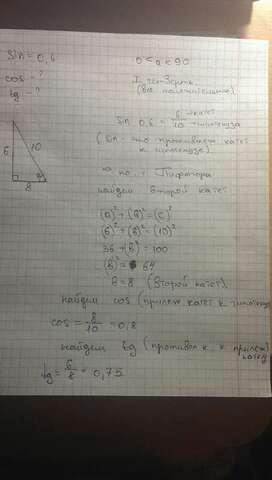 sin = 0,6
0 < α < 90
cos - ?
tg - ?
I четверть
(все положительные)
sin 0,6 = 6/10 → катет гипотенуза
(sin - это противолеж катет к гипотенузе).
6 10
8
по т. Пифагора
найдем второй катет
(a)² + (в)² = (c)²
(6)² + (в)² = (10)²
36 + в² = 100
(в)² = 64
в = 8 (второй катет).
найдем cos (прилеж катет к гипотенузе)
cos = 8/10 = 0,8
найдем tg (противол к. к прилеж. катету)
tg = 6/8 = 0,75